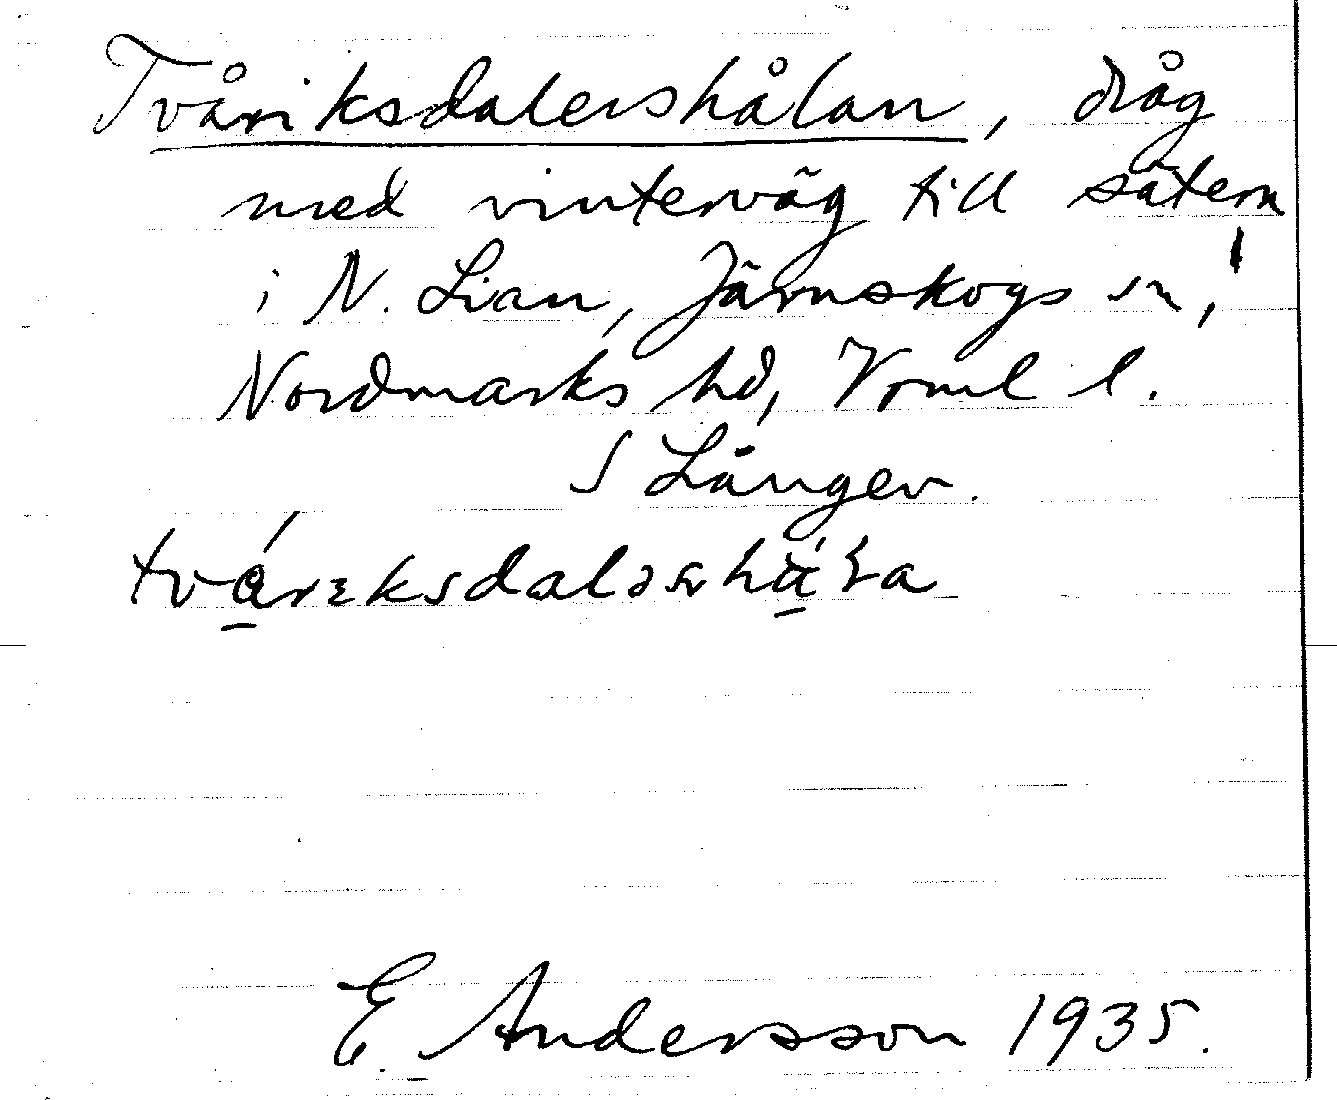 Tvåriksdalershålan, dråg
med vinterväg till sätern
i N. Lian, Järnskogs sn,
Nordmarks hd, Vrml l.
S Långev.
E Andersson 1935.